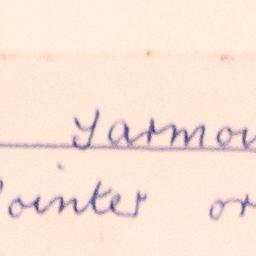 Yarmou
Pointer or